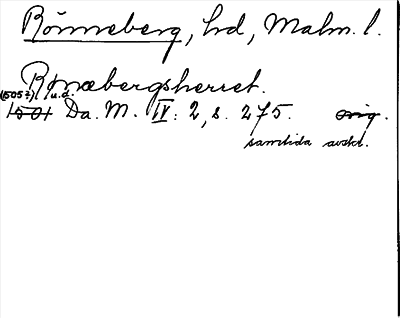 Rönneberg, hd, Malm. l.
Rønæbergsherret.
(1505?) u.d.
1501 Da. M. IV: 2, s. 275. orig.
samtida avskr.